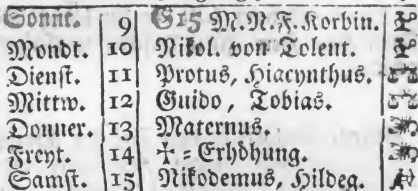 Sonnt. 9 G15 M.N.F. Korbin.
Mondt. 10 Nikol. von Tolent.
Dienst. 11 Protus, Hiacynthus.
Mittw. 12 Guido, Tobias.
Donner. 13 Maternus.
Freyt. 14 †=Erhöhung.
Samst. 15 Nikodemus, Hildeg.